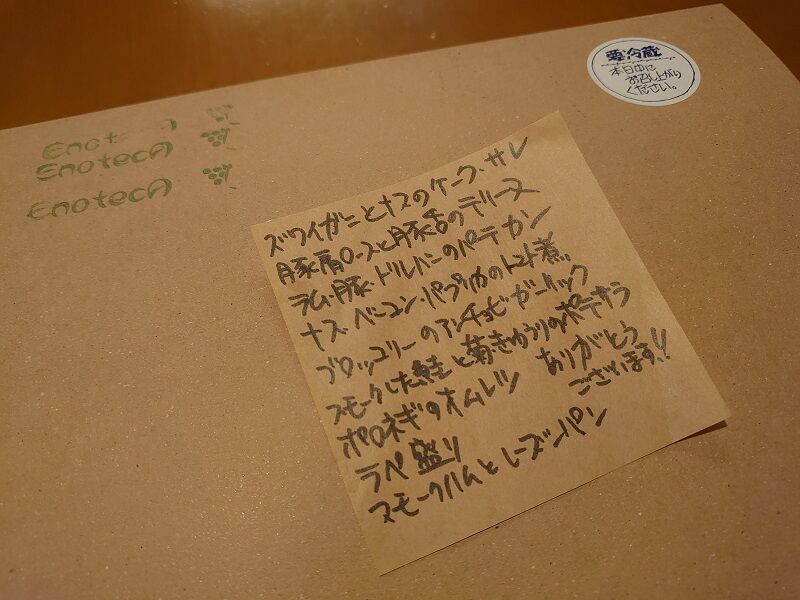 Enot
EnotecA
EnotecA
要冷蔵
本日中に
お召し上がり
ください。
ズワイガニとナスのケーク・サレ
豚肩ロースと豚舌のテリーヌ
ラム・豚・トリレバーのパテカン
ナス・ベーコン・パプリカのトマト煮
ブロッコリーのアンチョビガーリック
スモークした鮭と黄きゅうりのポテサラ
ポロネギのオムレツ ありがとう
ございます!!
ラペ盛り
スモークハムとレーズンパン